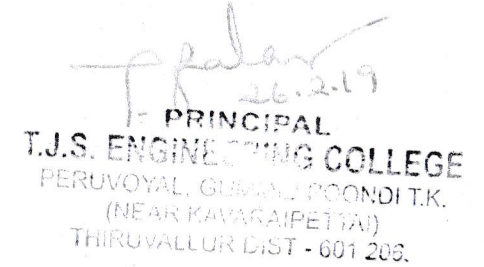 26.2.19
PRINCIPAL
T.J.S. ENGINEERING COLLEGE
PERUVOYAL, GUMMIDIPOONDI T.K.
(NEAR KAVARAIPETTAI)
THIRUVALLUR DIST - 601 206.